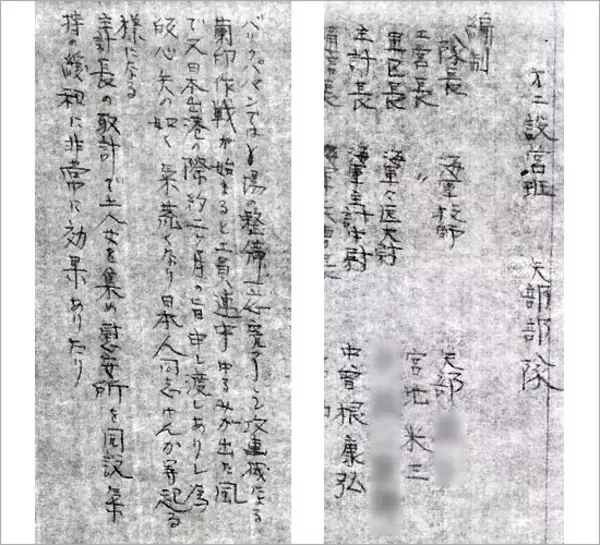 第二設営班 矢部部隊
編制
隊長 海軍技師 矢部
工営長 〃 宮地米三
軍医長 海軍々医大尉
主計長 海軍主計中尉 中曽根康弘
バリックパパンでは場の整備一応完了して攻撃機による
蘭印作戦が始まると工員連中ゆるみが出た風
で又日本出港の際約二ヶ月の旨申し渡しありし為
皈心矢の如く気荒くなり日本人同志けんか等起る
様になる
主計長の取計で土人女を集め慰安所を開設気
持の緩和に非常に効果ありたり